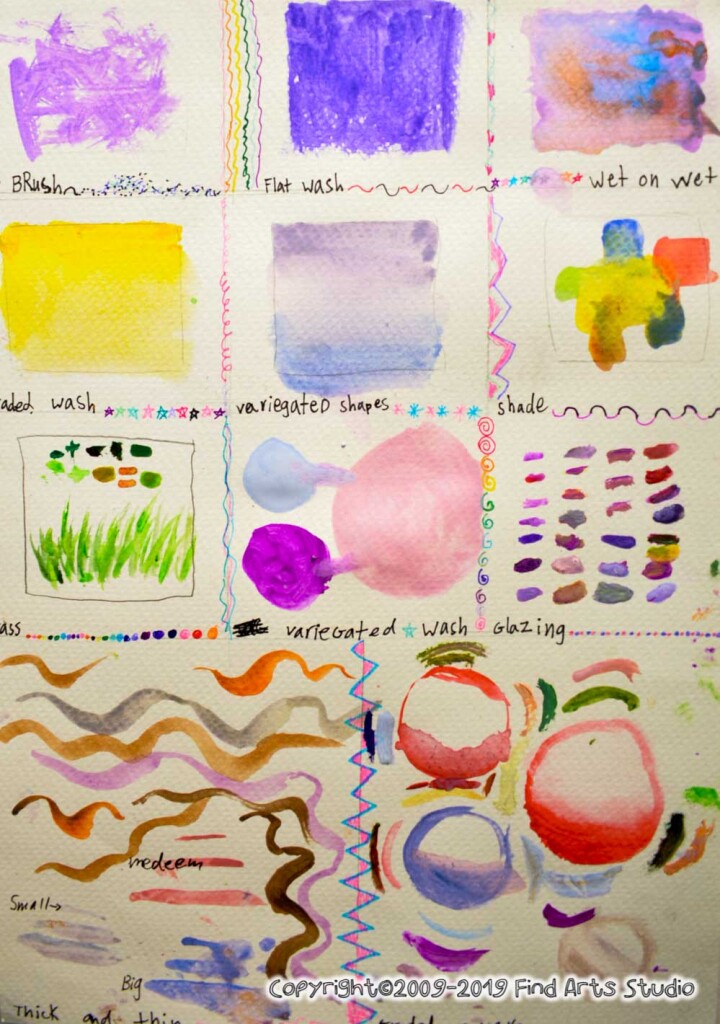 BRush
Flat wash
wet on wet
aded wash
variegated shapes
shade
ass
variegated wash
Glazing
medeem
Small→
Big
Copyright©2009-2019 Find Arts Studio
Thick and thin